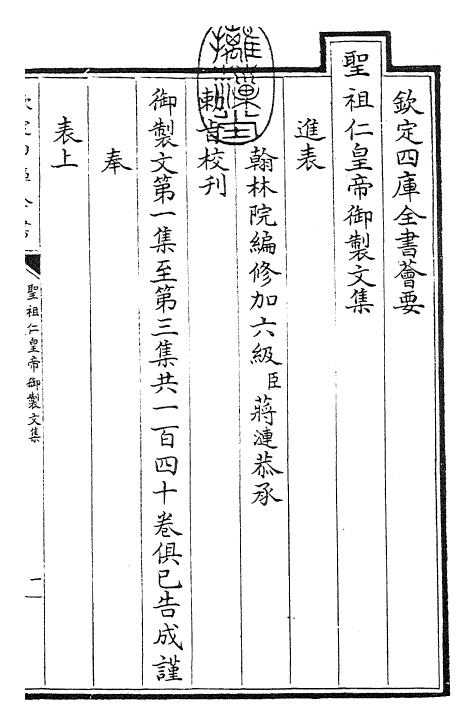 欽定四庫全書薈要
聖祖仁皇帝御製文集
進表
翰林院編修加六級臣蔣漣恭承
敕旨校刊
御製文第一集至第三集共一百四十卷俱已告成謹
奉
表上
聖祖仁皇帝御製文集
一